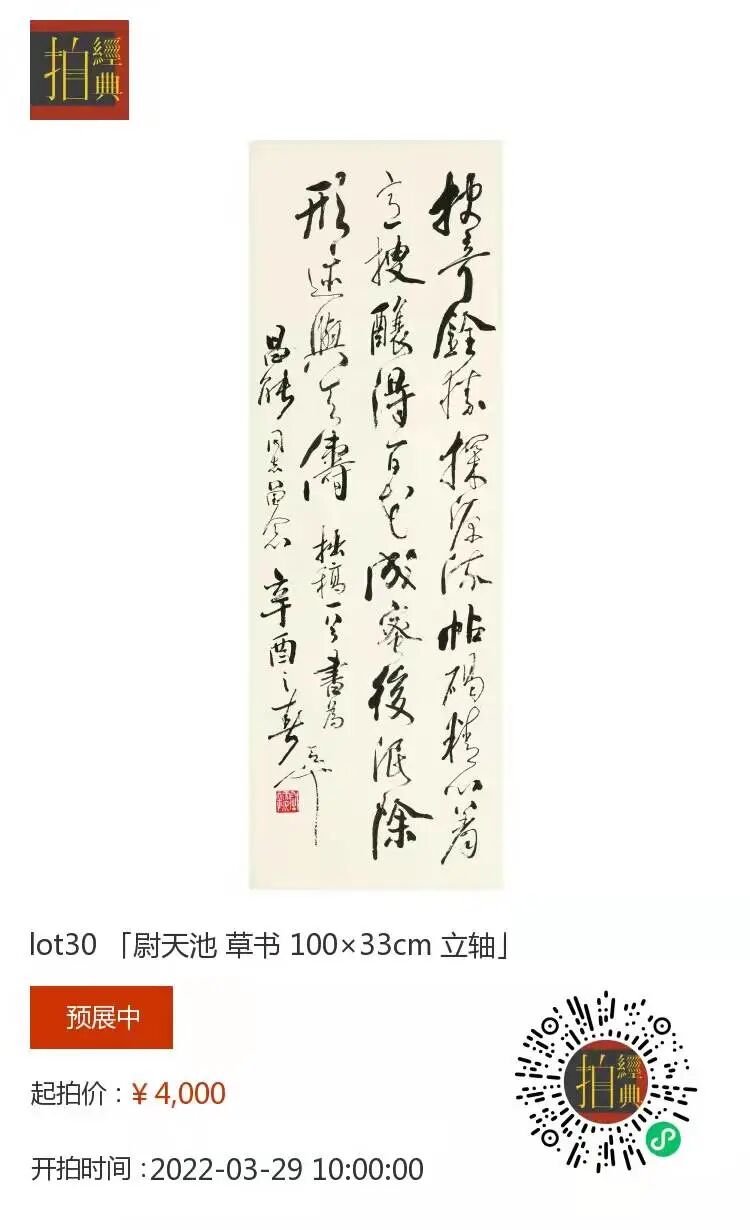 拍 經典
抉奇銓勝探源流帖碣精心着
意搜釀得百花成蜜後泯除
形迹與天儔 拙稿一首書為
昌能同志留念 辛酉之春
lot30 「尉天池 草书 100×33cm 立轴」
预展中
起拍价：¥ 4,000
开拍时间：2022-03-29 10:00:00
拍 經典